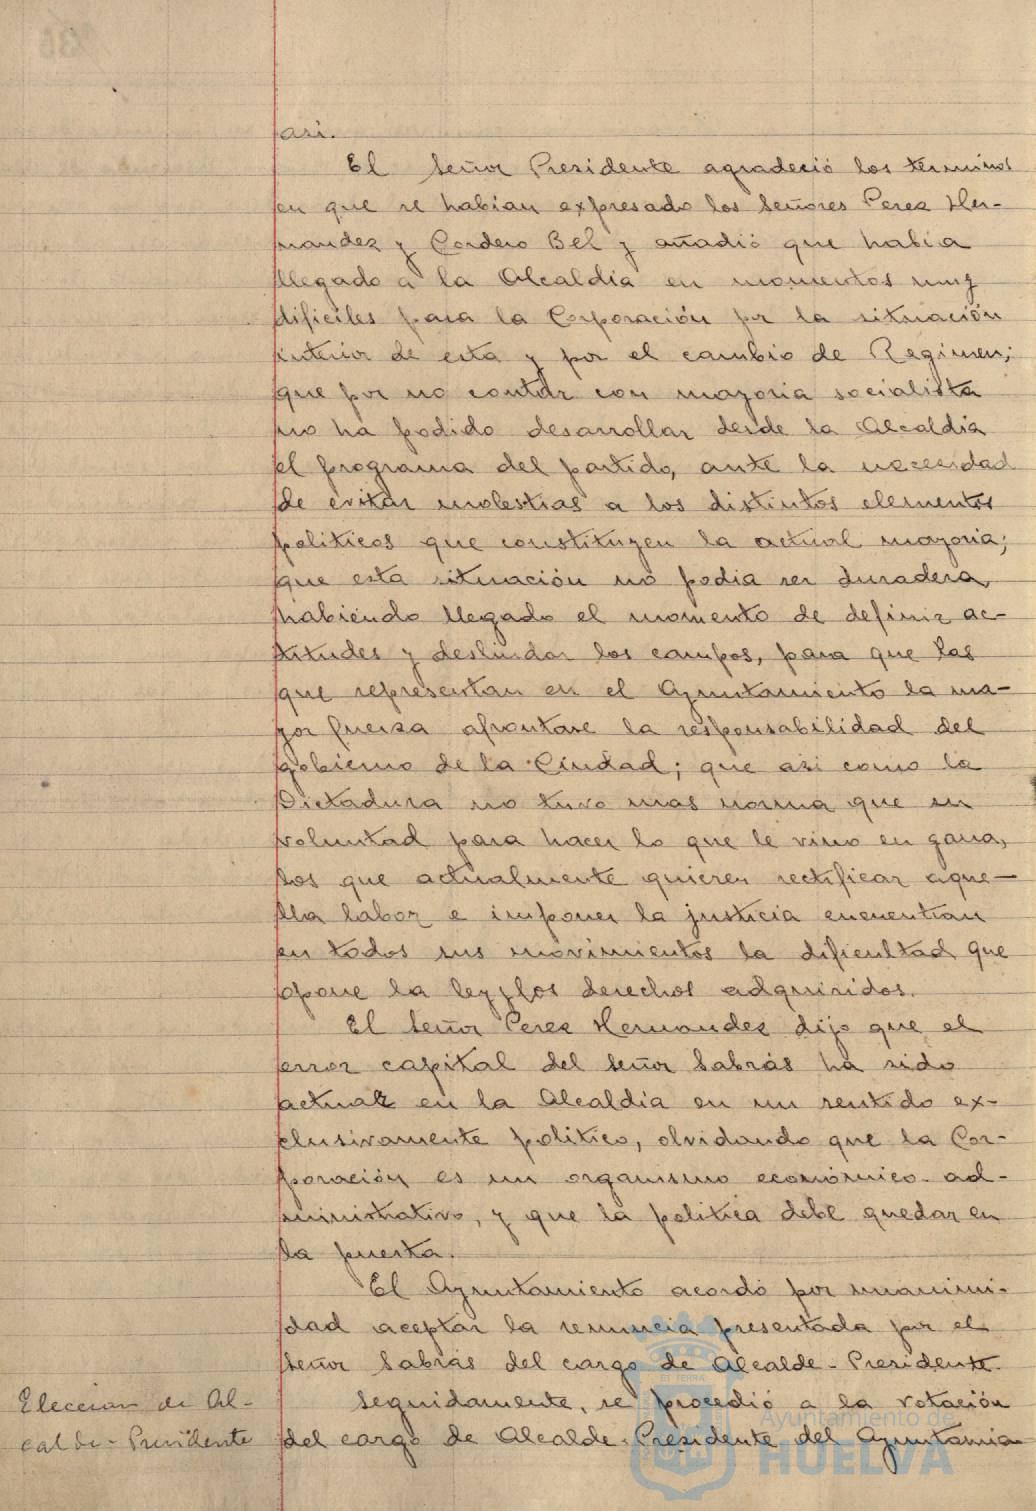 asi.
El señor Presidente agradeció los terminos
en que se habian expresado los señores Perez Her-
nandez y Cordero Bel y añadió que habia
llegado a la Alcaldia en momentos muy
dificiles para la Corporación por la situación
interior de esta y por el cambio de Regimen;
que por no contar con mayoria socialista
no ha podido desarrollar desde la Alcaldia
el programa del partido, ante la necesidad
de evitar molestias a los distintos elementos
politicos que constituyen la actual mayoria;
que esta situación no podia ser duradera,
habiendo llegado el momento de definir ac-
titudes y deslindar los campos, para que los
que representan en el Ayuntamiento la ma-
yor fuerza afrontase la responsabilidad del
gobierno de la Ciudad; que asi como la
Dictadura no tuvo mas norma que su
voluntad para hacer lo que le vino en gana,
los que actualmente quieren rectificar aque-
lla labor e imponer la justicia encuentran
en todos sus movimientos la dificultad que
opone la ley y los derechos adquiridos.
El señor Perez Hernandez dijo que el
error capital del señor Sabrás ha sido
actuar en la Alcaldia en un sentido ex-
clusivamente politico, olvidando que la Cor-
poración es un organismo económico-ad-
ministrativo, y que la politica debe quedar en
la puerta.
El Ayuntamiento acordó por unanimi-
dad aceptar la renuncia presentada por el
señor Sabrás del cargo de Alcalde-Presidente.
Elección de Al-
calde-Presidente
Seguidamente, se procedió a la votación
del cargo de Alcalde-Presidente del Ayuntamie
Ayuntamiento de
HUELVA